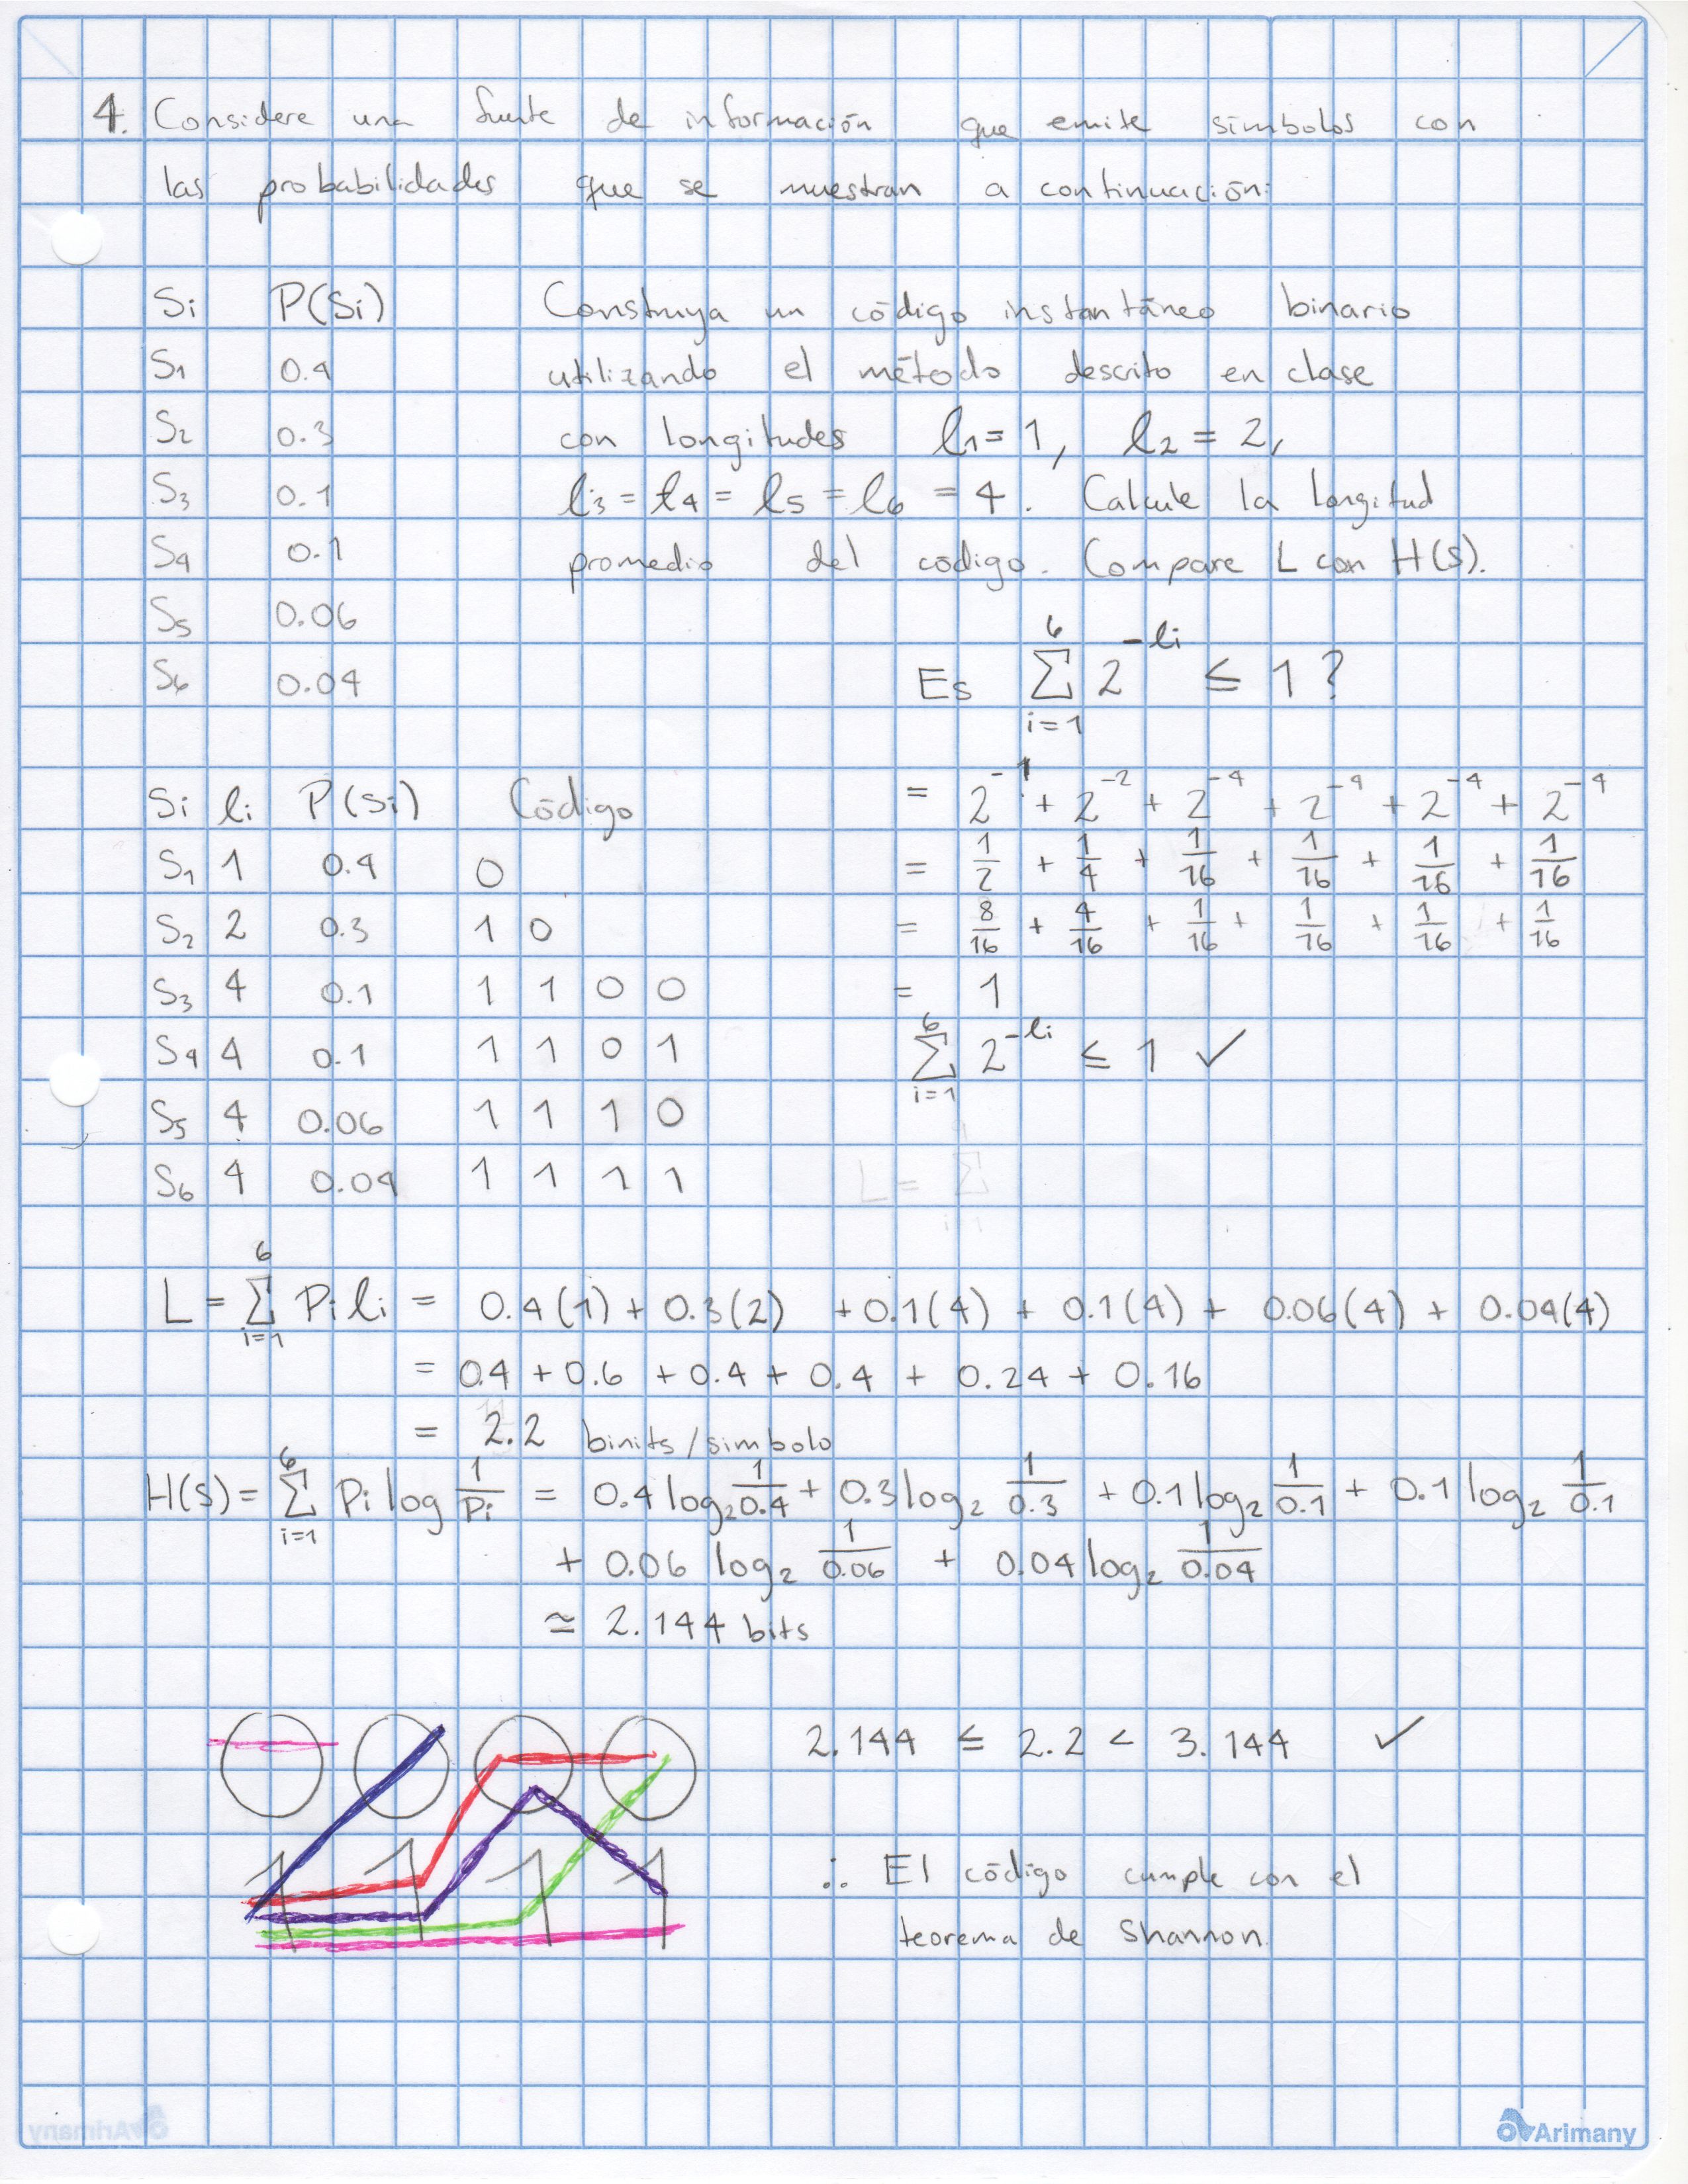 4. Considere una fuente de información que emite símbolos con
las probabilidades que se muestran a continuación:
Si P(Si)
S1 0.4
S2 0.3
S3 0.1
S4 0.1
S5 0.06
S6 0.04
Construya un código instantáneo binario
utilizando el método descrito en clase
con longitudes l1 = 1, l2 = 2,
l3 = l4 = l5 = l6 = 4. Calcule la longitud
promedio del código. Compare L con H(s).
Es Σ_{i=1}^{6} 2^{-li} ≤ 1?
= 2^{-1} + 2^{-2} + 2^{-4} + 2^{-4} + 2^{-4} + 2^{-4}
= 1/2 + 1/4 + 1/16 + 1/16 + 1/16 + 1/16
= 8/16 + 4/16 + 1/16 + 1/16 + 1/16 + 1/16
= 1
Σ_{i=1}^{6} 2^{-li} ≤ 1 ✓
Si li P(Si) Código
S1 1 0.4 0
S2 2 0.3 1 0
S3 4 0.1 1 1 0 0
S4 4 0.1 1 1 0 1
S5 4 0.06 1 1 1 0
S6 4 0.04 1 1 1 1
L = Σ
L = Σ_{i=1}^{6} Pi li = 0.4(1) + 0.3(2) + 0.1(4) + 0.1(4) + 0.06(4) + 0.04(4)
= 0.4 + 0.6 + 0.4 + 0.4 + 0.24 + 0.16
= 2.2 binits/simbolo
H(s) = Σ_{i=1}^{6} Pi log 1/Pi = 0.4 log2 1/0.4 + 0.3 log2 1/0.3 + 0.1 log2 1/0.1 + 0.1 log2 1/0.1
+ 0.06 log2 1/0.06 + 0.04 log2 1/0.04
≃ 2.144 bits
0 0 0 0
1 1 1 1
2.144 ≤ 2.2 < 3.144 ✓
∴ El código cumple con el
teorema de Shannon.
Arimany